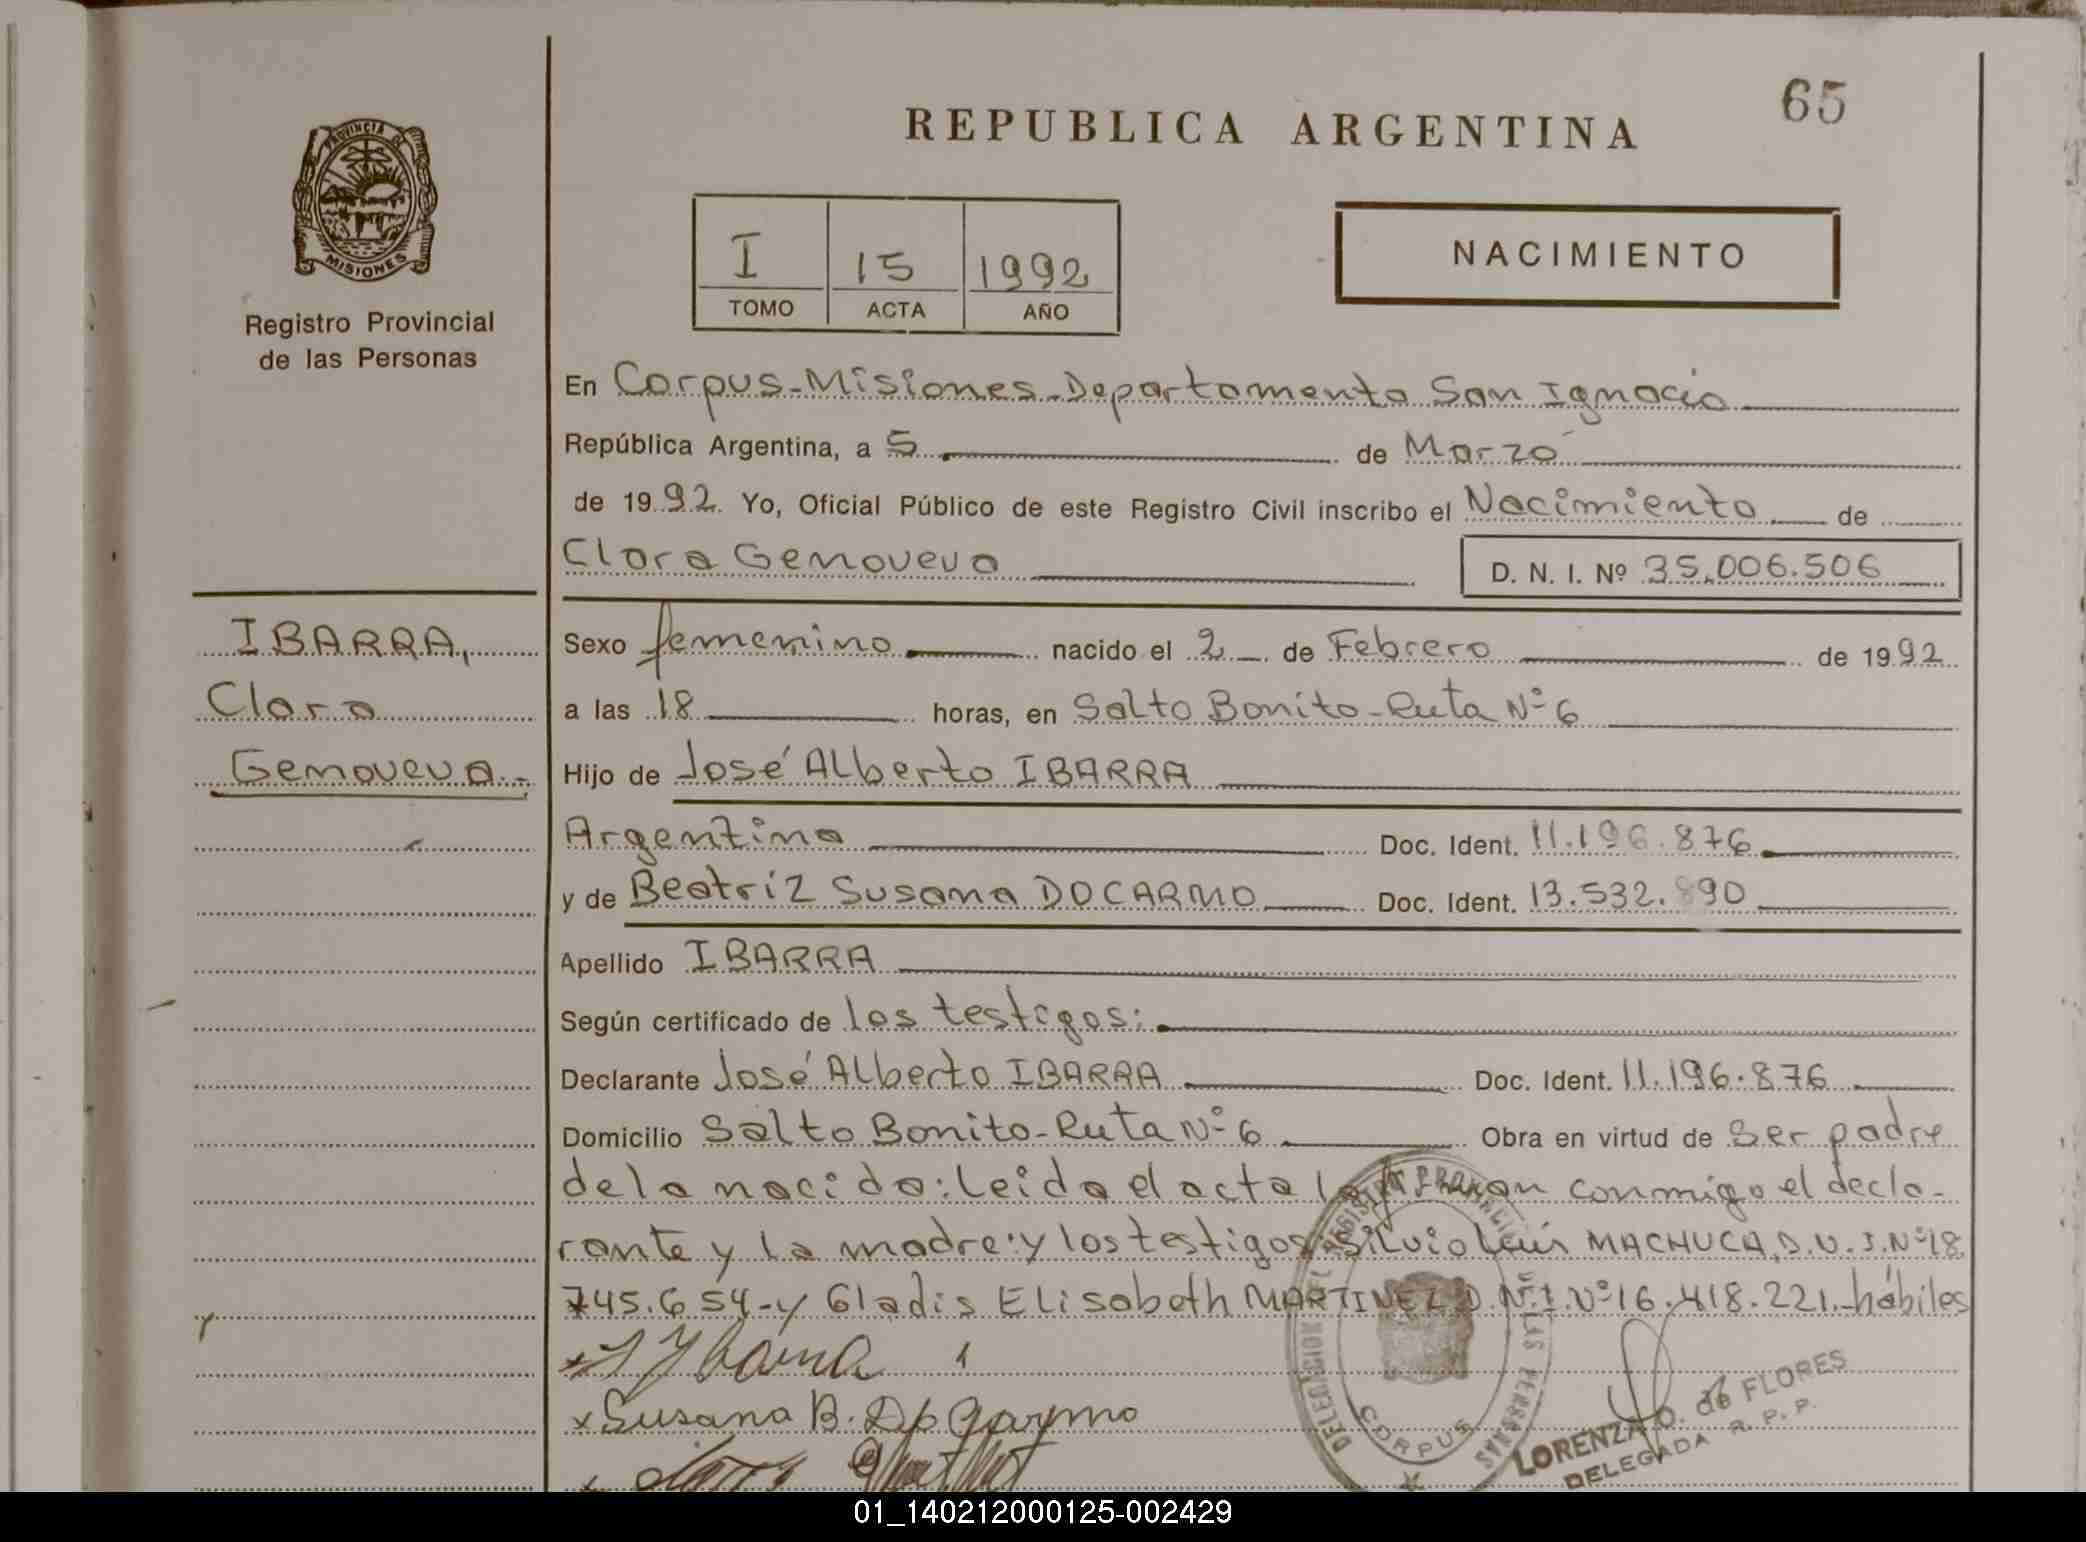 65
REPUBLICA ARGENTINA
PROVINCIA DE
MISIONES
Registro Provincial
de las Personas
I 15 1992
TOMO ACTA AÑO
NACIMIENTO
En Corpus-Misiones-Departamento San Ignacio
República Argentina, a 5 de Marzo
de 1992 Yo, Oficial Público de este Registro Civil inscribo el Nacimiento de
Clara Genoveva D. N. I. Nº 35.006.506
IBARRA,
Clara
Genoveva.-
Sexo femenino nacido el 2 de Febrero de 1992
a las 18 horas, en Salto Bonito-Ruta Nº 6
Hijo de José Alberto IBARRA
Argentina Doc. Ident. 11.196.876
y de Beatríz Susana DOCARMO Doc. Ident. 13.532.890
Apellido IBARRA
Según certificado de los testigos:
Declarante José Alberto IBARRA Doc. Ident. 11.196.876
Domicilio Salto Bonito-Ruta Nº 6 Obra en virtud de Ser padre
de la nacida: leida el acta la firman conmigo el decla-
rante y la madre: y los testigos: Silvio Luis MACHUCA, D.N.I. Nº 18
745.654-y Gladis Elisabeth MARTINEZ D.N.I. Nº 16.418.221.-hábiles
Susana B. Do Carmo
CORPUS
LORENZA O. de FLORES
DELEGADA R. P. P.
01_140212000125-002429